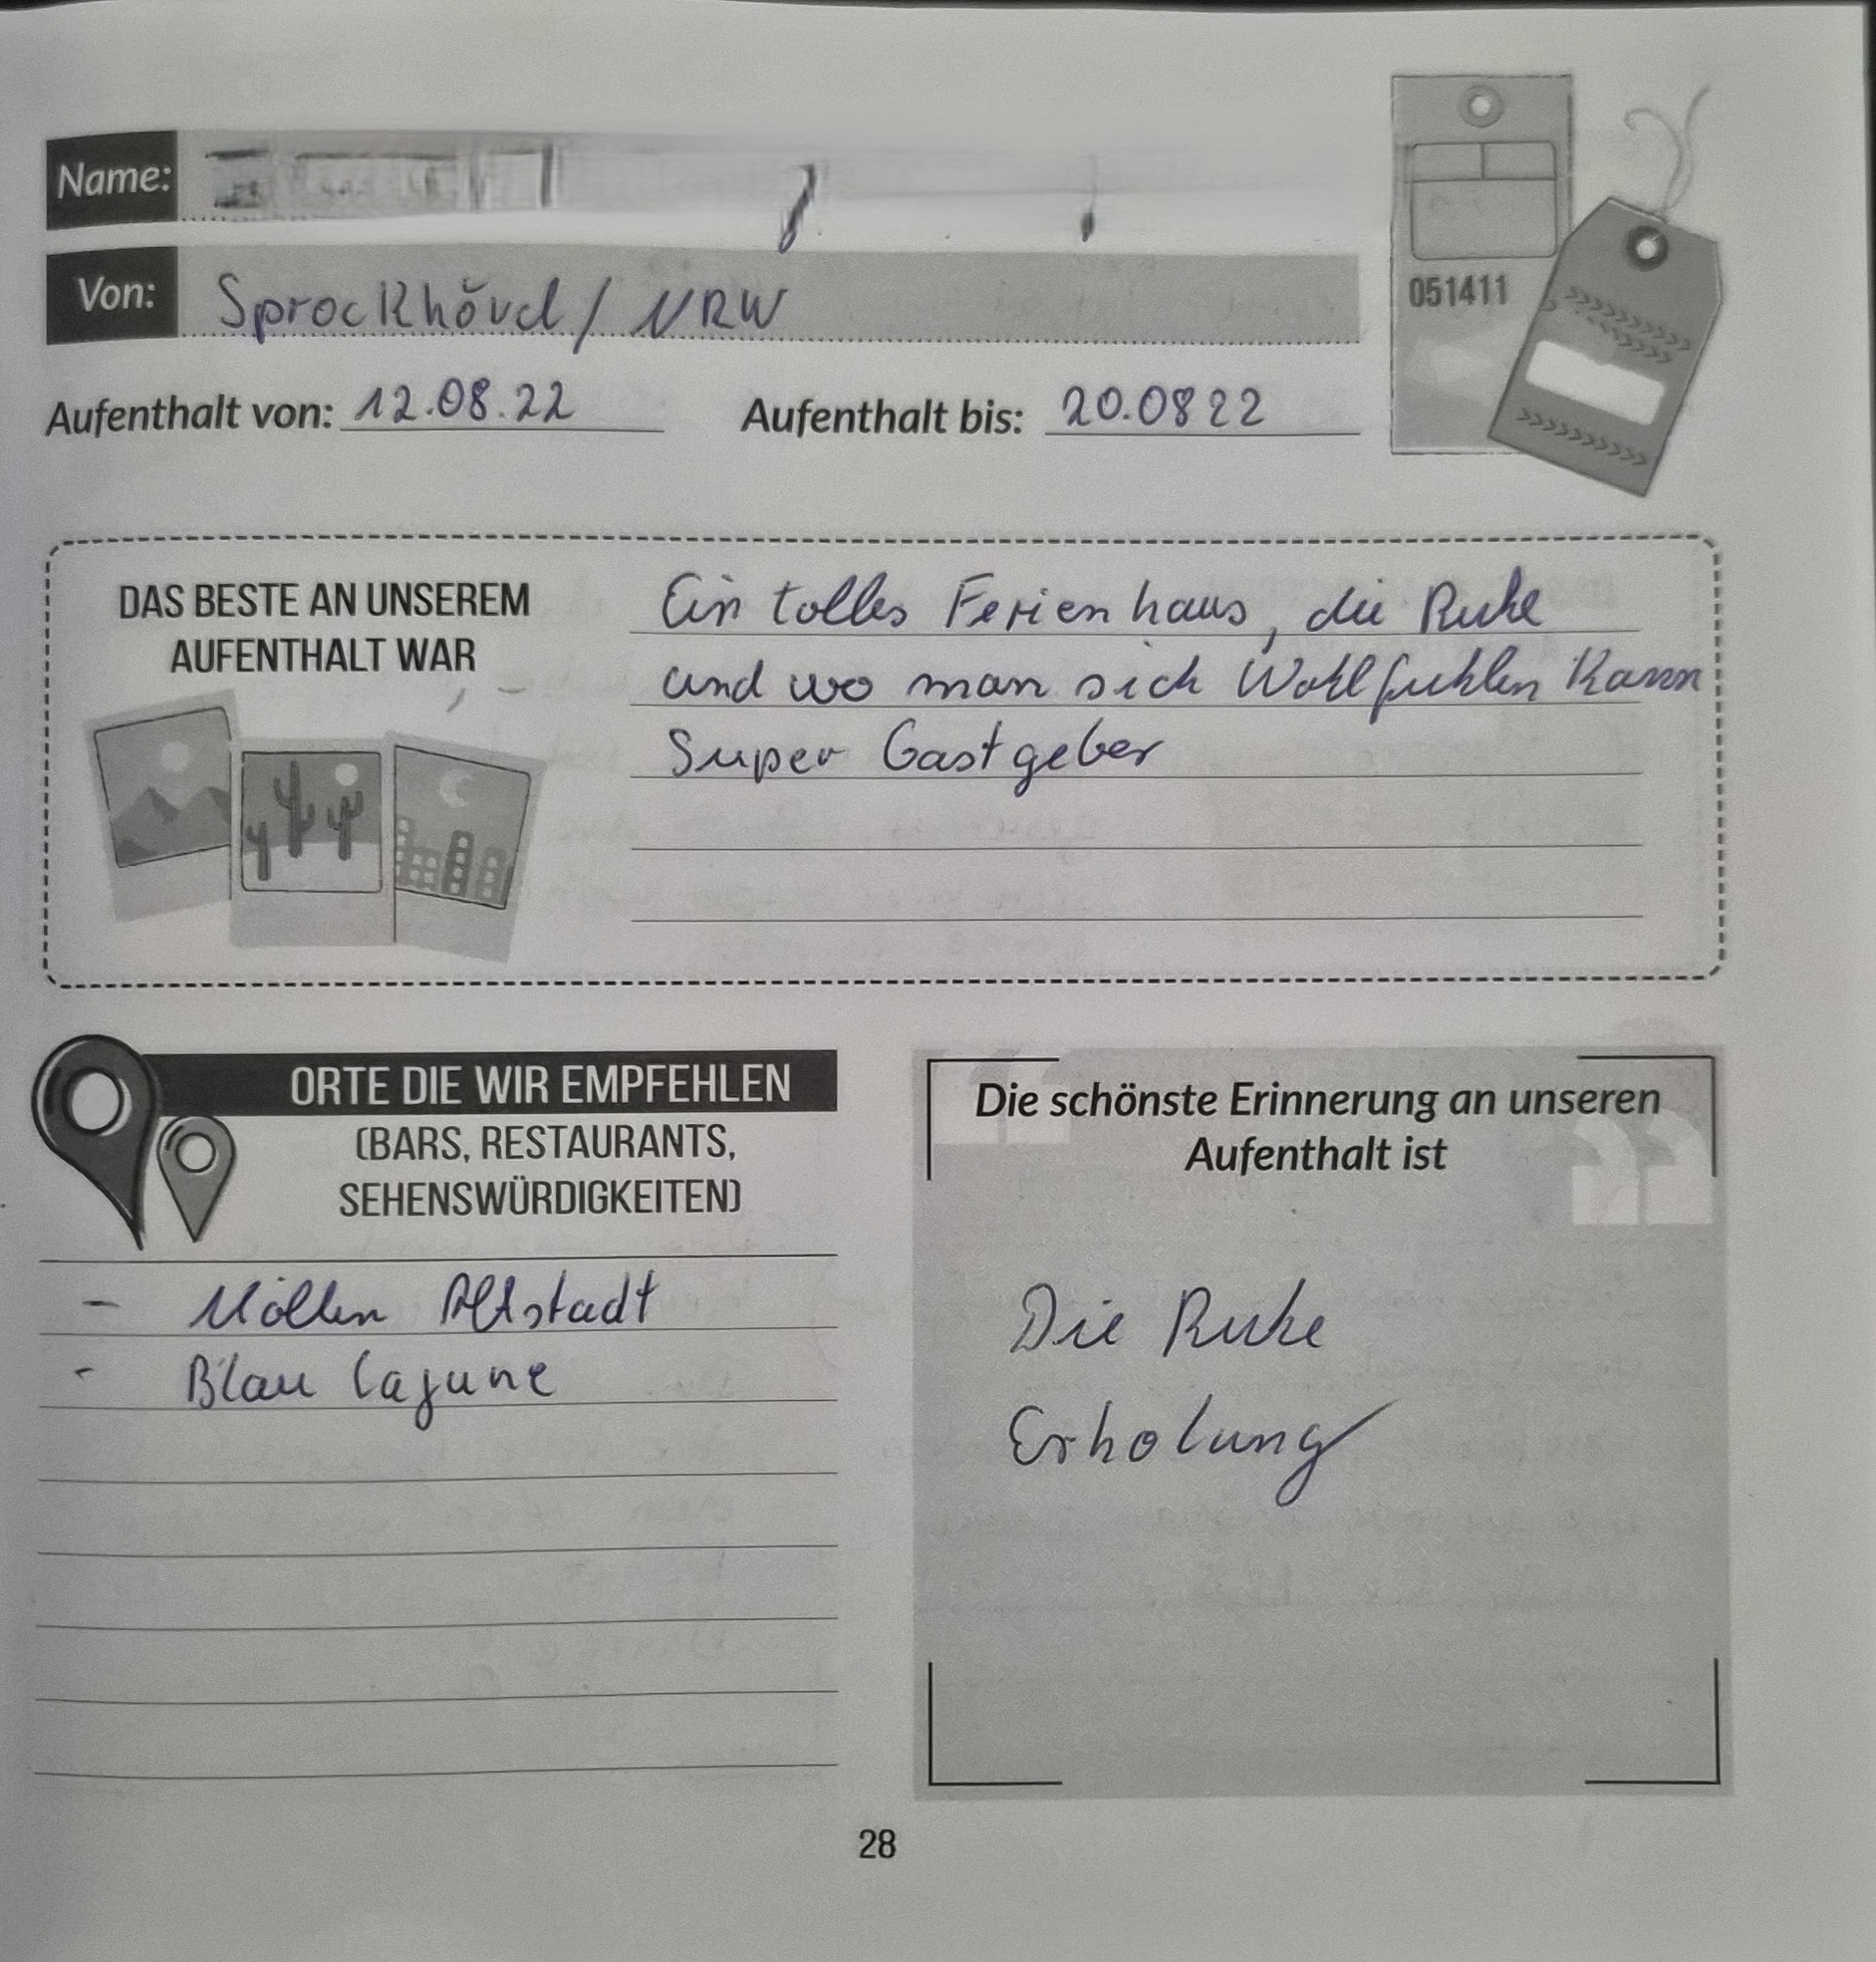 Name:
Von: Sprockhövel / NRW
Aufenthalt von: 12.08.22 Aufenthalt bis: 20.0822
051411
DAS BESTE AN UNSEREM
AUFENTHALT WAR
Ein tolles Ferienhaus, die Ruhe
und wo man sich Wohlfuhlen kann
Super Gastgeber
ORTE DIE WIR EMPFEHLEN
(BARS, RESTAURANTS,
SEHENSWÜRDIGKEITEN)
- Möllen Altstadt
- Blau Lagune
Die schönste Erinnerung an unseren
Aufenthalt ist
Die Ruhe
Erholung
28